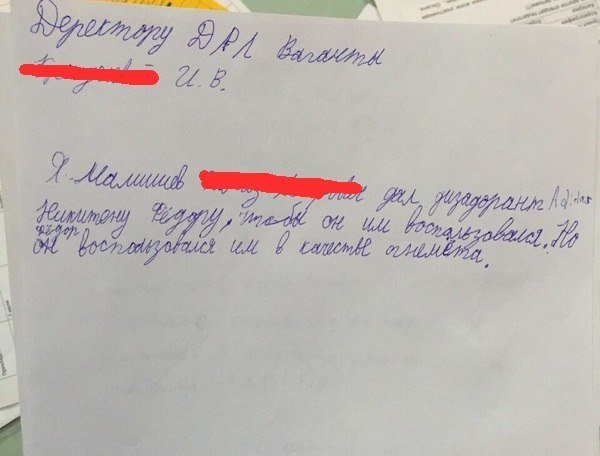 Деректору ДАЛ Ваганты
И.В.
Я. Малишев дал дизадорант Adidas
Никитену Фёдору, чтобы он им воспользовался. Но
фёдор
он воспользовался им в качестве огнемёта.